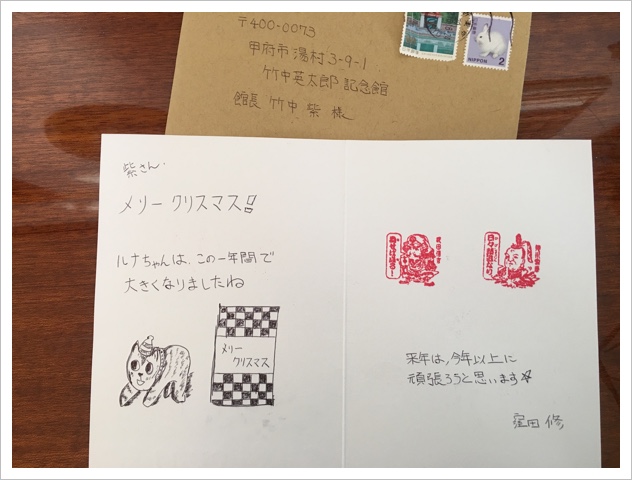 〒400-0073
甲府市湯村3-9-1
竹中英太郎記念館
館長 竹中 紫 様
NIPPON 2
紫さん
メリー クリスマス!!
ルナちゃんは、この一年間で
大きくなりましたね
メリー
クリスマス
来年は、今年以上に
頑張ろうと思います☆
窪田 修